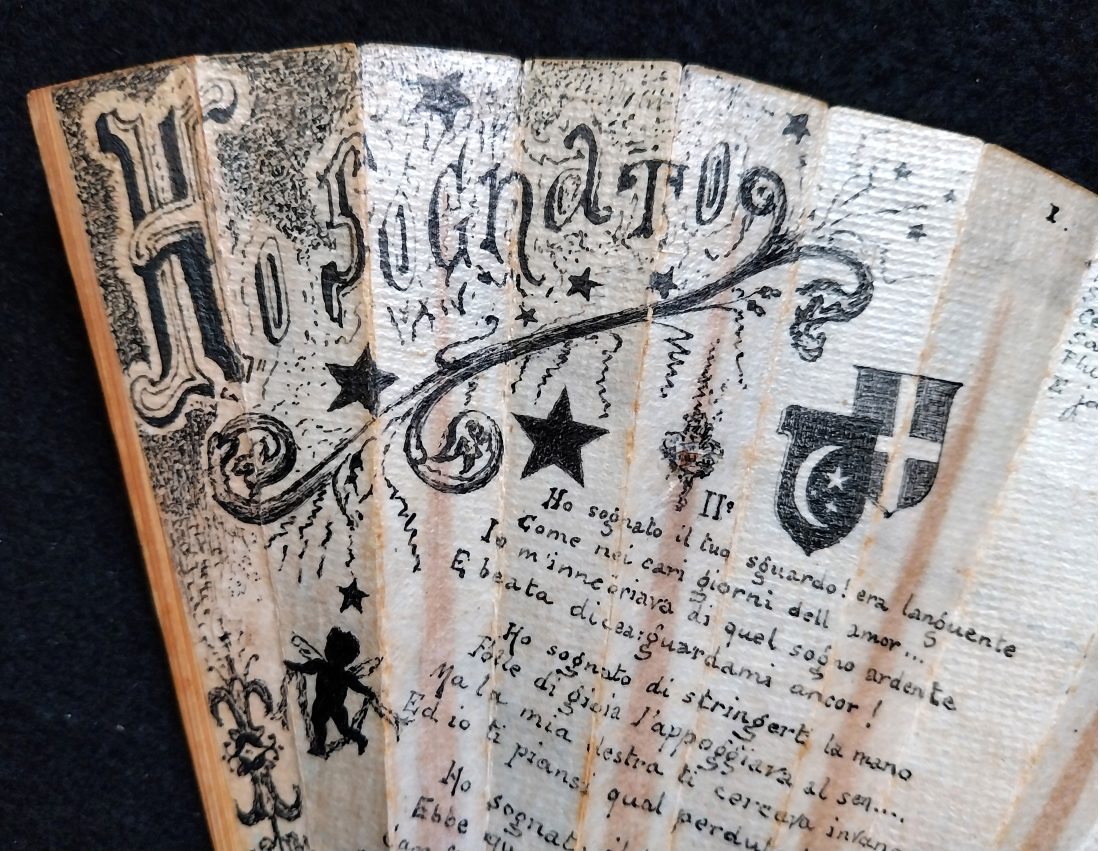 Ho Sognato
I
IIº
Ho sognato il tuo sguardo! era languente
Come nei cari giorni dell amor...
Io m'innebriava di quel sogno ardente
E beata dicea: guardami ancor!
Ho sognato di stringerti la mano
Folle di gioia l'appoggiava al sen....
Ma la mia destra ti cercava invano
Ed io ti piansi qual perduto
Ho sognato il
Ebbe